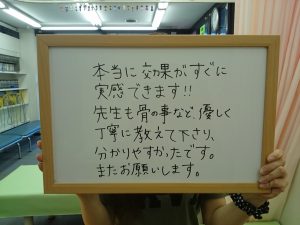 本当に効果がすぐに
実感できます!!
先生も骨の事など、優しく
丁寧に教えて下さり、
分かりやすかったです。
またお願いします。